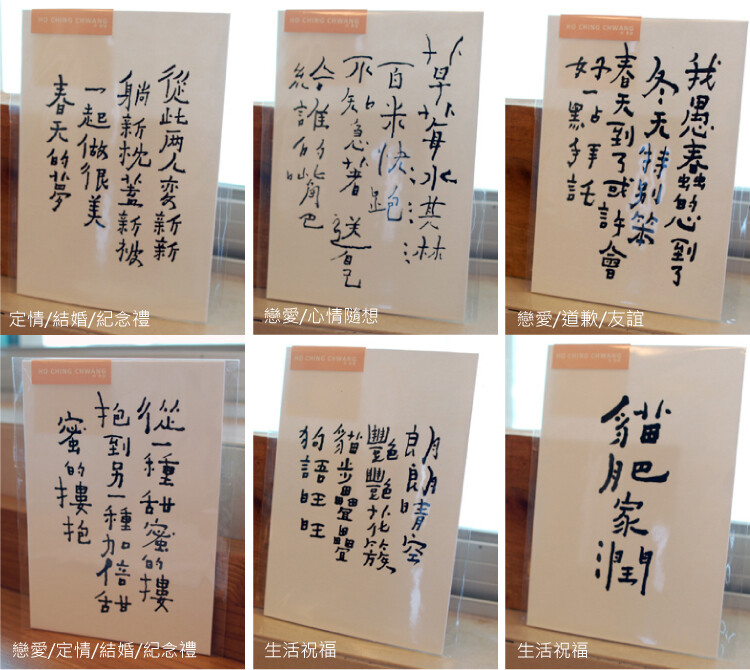 HO CHING CHWANG
從此两人變新新
躺新枕蓋新被
一起做很美
春天的夢
定情/結婚/紀念禮
HO CHING CHWANG
草莓冰淇淋
百米快跑
不知急著送自己
給誰的嘴巴
戀愛/心情隨想
HO CHING CHWANG
我愚蠢的心到了
冬天特別笨
春天到了或許會
好一點拜託
戀愛/道歉/友誼
HO CHING CHWANG
從一種甜蜜的摟
抱到另一種加倍甜
蜜的摟抱
戀愛/定情/結婚/紀念禮
HO CHING CHWANG
朗朗晴空
豔豔花簇
貓步疊疊
狗語旺旺
生活祝福
HO CHING CHWANG
貓肥家潤
生活祝福